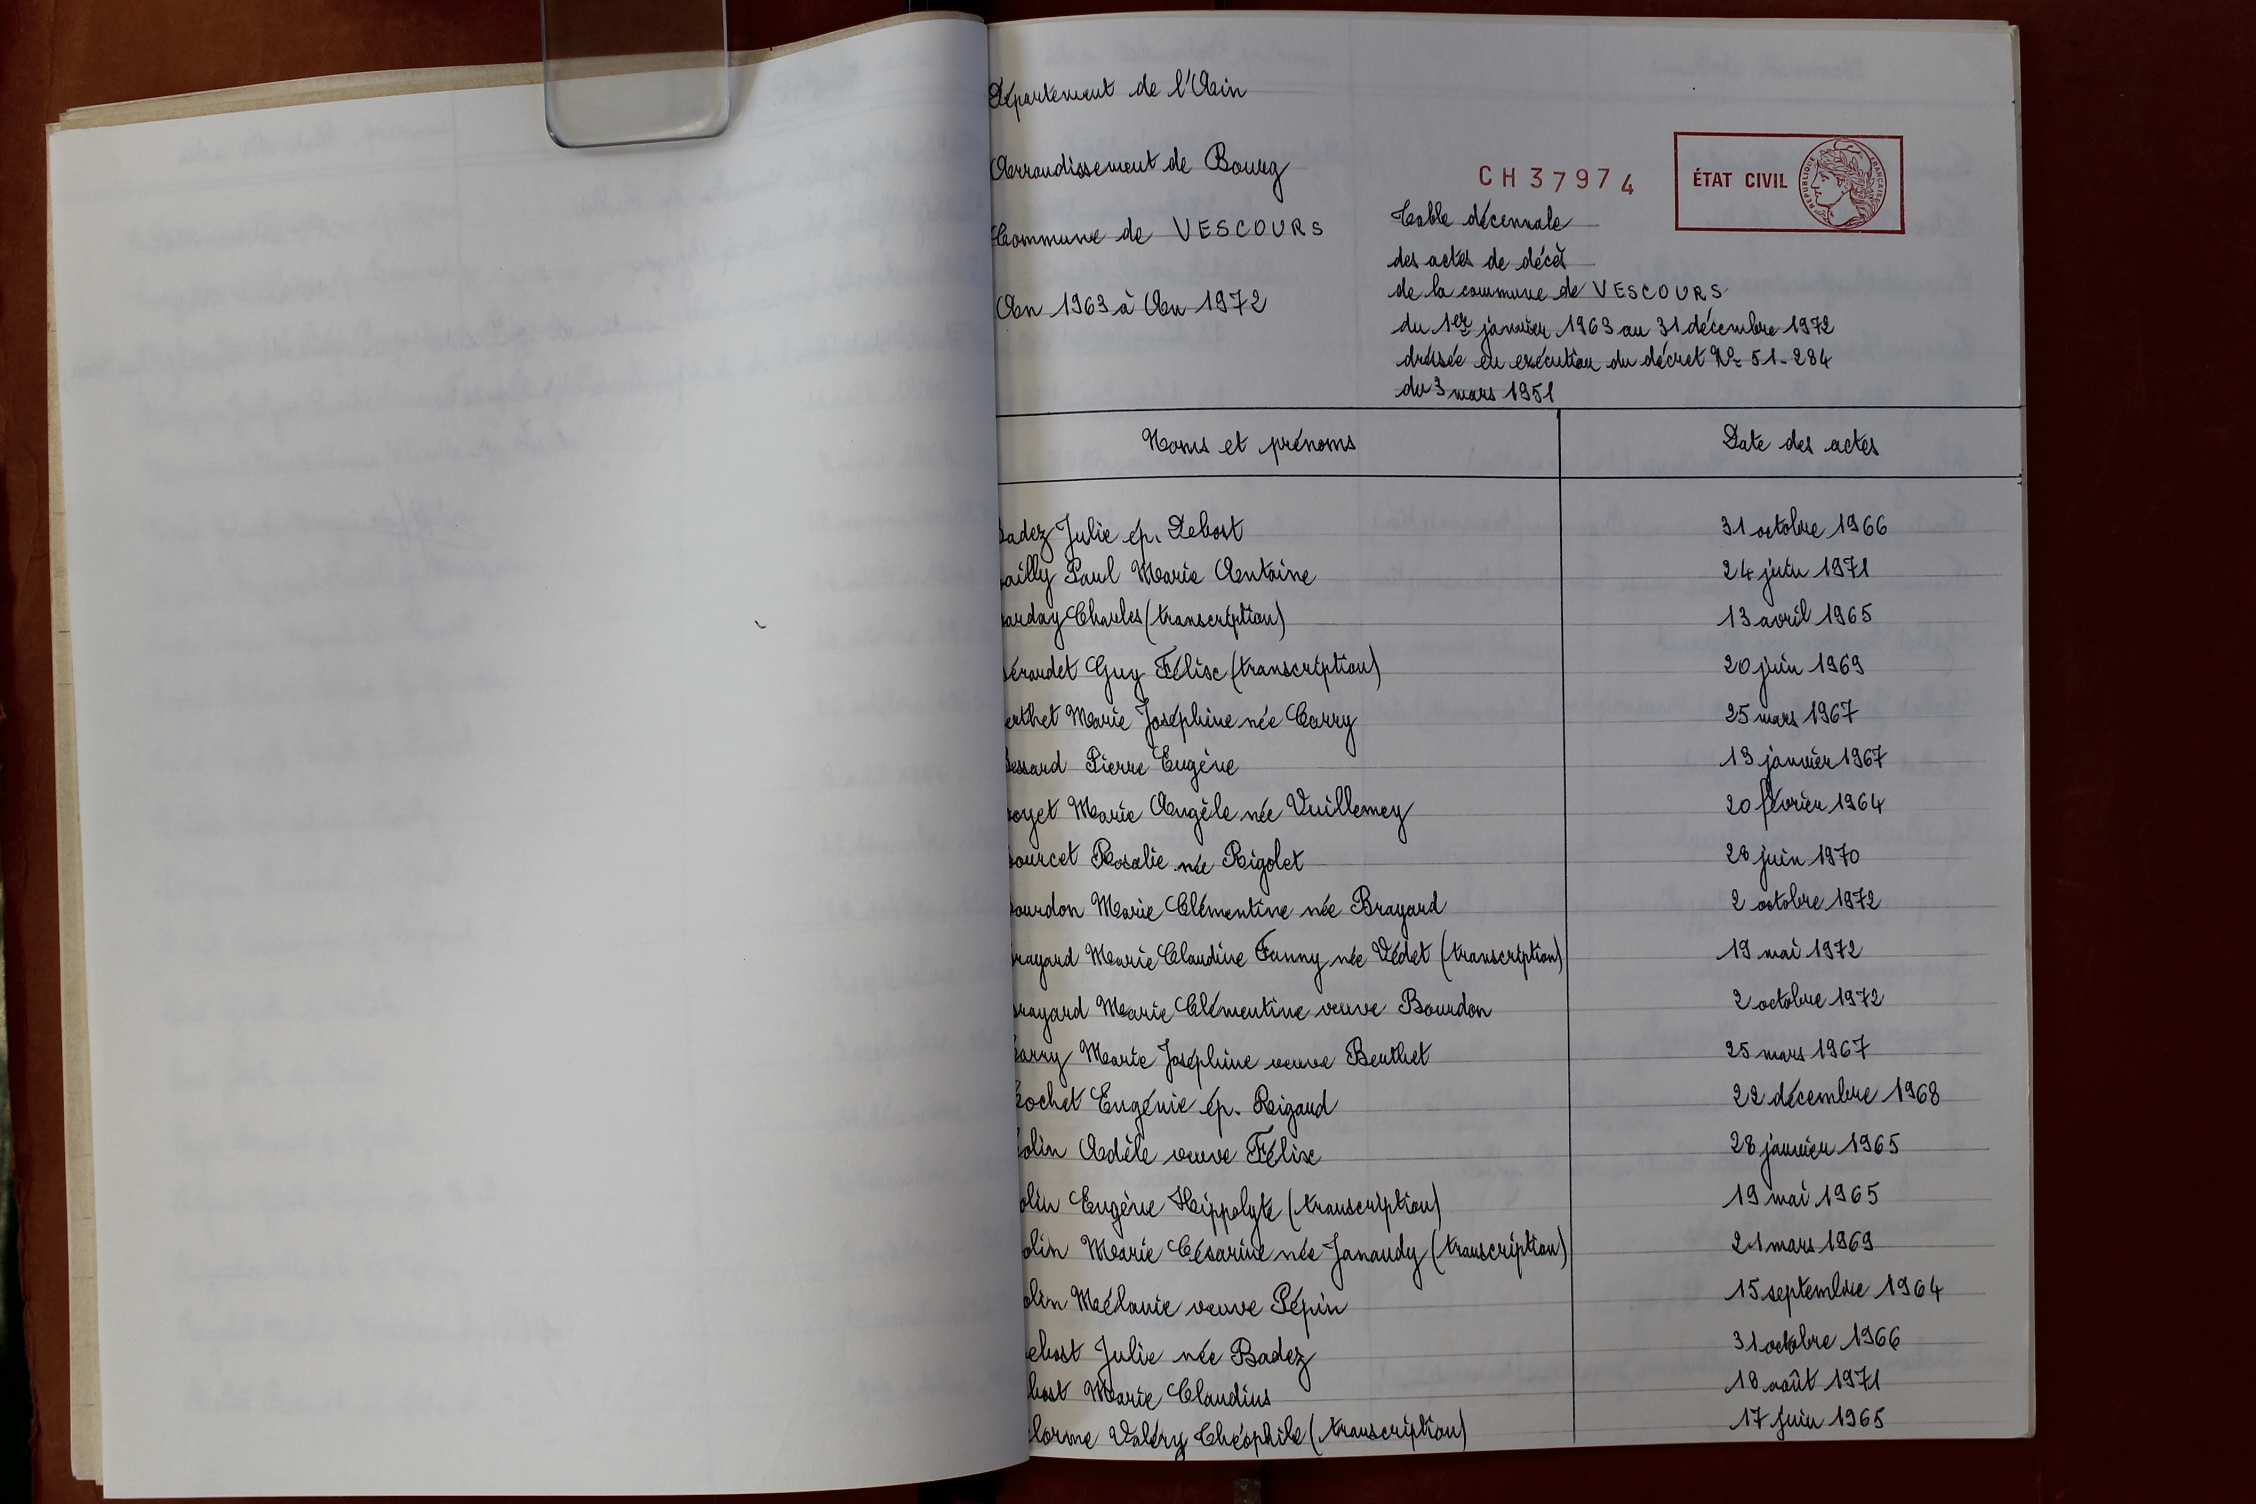 Département de l'Ain
Arrondissement de Bourg
CH 37974
ÉTAT CIVIL
RÉPUBLIQUE FRANÇAISE
Commune de VESCOURS
Table décennale
des actes de décès
de la commune de VESCOURS
An 1963 à An 1972
du 1er janvier 1963 au 31 décembre 1972
dressée en exécution du décret No 51-284
du 3 mars 1951
Noms et prénoms Date des actes
adez Julie ép. Debost 31 octobre 1966
ailly Paul Marie Antoine 24 juin 1971
arday Charles (transcription) 13 avril 1965
éroudet Guy Félix (transcription) 20 juin 1969
erthet Marie Joséphine née Carry 25 mars 1967
essard Pierre Eugène 13 janvier 1967
oyet Marie Angèle née Vuillemey 20 février 1964
ourcet Rosalie née Rigolet 28 juin 1970
ourdon Marie Clémentine née Brayard 2 octobre 1972
rayard Marie Claudine Fanny née Védet (transcription) 19 mai 1972
rayard Marie Clémentine veuve Bourdon 2 octobre 1972
arry Marie Joséphine veuve Berthet 25 mars 1967
ochet Eugénie ép. Rigaud 22 décembre 1968
olin Adèle veuve Félix 28 janvier 1965
olin Eugène Hippolyte (transcription) 19 mai 1965
olin Marie Césarine née Janaudy (transcription) 21 mars 1969
olin Mélanie veuve Pépin 15 septembre 1964
ebost Julie née Badez 31 octobre 1966
bost Marie Claudius 18 août 1971
lorme Valéry Théophile (transcription) 17 juin 1965